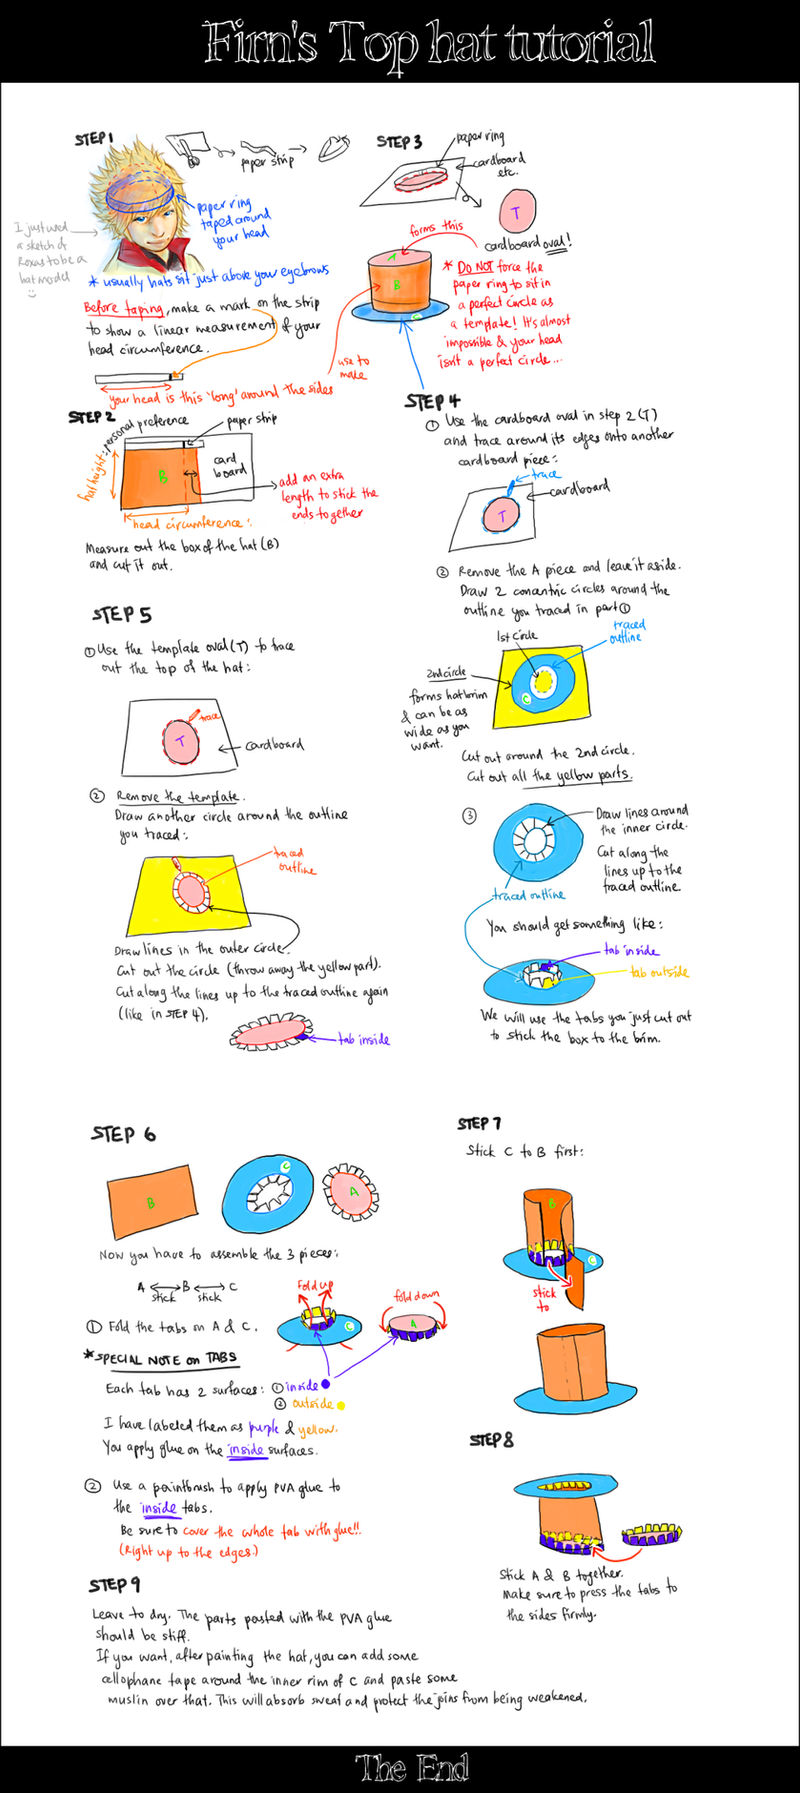 Firn's Top hat tutorial
STEP 1
paper strip
paper ring
taped around
your head
I just used
a sketch of
Roxas to be a
hat model
* usually hats sit just above your eyebrows
Before taping, make a mark on the strip
to show a linear measurement of your
head circumference.
your head is this 'long' around the sides
use to
make
STEP 2
hat height: personal preference
paper strip
card
board
B
add an extra
length to stick the
ends together
head circumference:
Measure out the box of the hat (B)
and cut it out.
STEP 3
paper ring
cardboard
etc.
T
cardboard oval!
forms this
A
B
C
* DO NOT force the
paper ring to sit in
a perfect circle as
a template! It's almost
impossible & your head
isn't a perfect circle...
STEP 4
① Use the cardboard oval in step 2 (T)
and trace around its edges onto another
cardboard piece:
trace
cardboard
T
② Remove the A piece and leave it aside.
Draw 2 concentric circles around the
outline you traced in part ①
1st circle
traced
outline
2nd circle
forms hat brim
& can be as
wide as you
want.
C
Cut out around the 2nd circle.
Cut out all the yellow parts.
③
Draw lines around
the inner circle.
Cut along the
lines up to the
traced outline.
traced outline
You should get something like:
tab inside
tab outside
We will use the tabs you just cut out
to stick the box to the brim.
STEP 5
① Use the template oval (T) to trace
out the top of the hat:
trace
T
cardboard
② Remove the template.
Draw another circle around the outline
you traced:
traced
outline
Draw lines in the outer circle.
Cut out the circle (throw away the yellow part).
Cut along the lines up to the traced outline again
(like in STEP 4).
tab inside
STEP 6
B
C
A
Now you have to assemble the 3 pieces:
A B C
stick stick
① Fold the tabs on A & C.
Fold up
C
fold down
A
* SPECIAL NOTE on TABS
Each tab has 2 surfaces: ① inside
② outside
I have labeled them as purple & yellow.
You apply glue on the inside surfaces.
② Use a paintbrush to apply PVA glue to
the inside tabs.
Be sure to cover the whole tab with glue!!
(Right up to the edges.)
STEP 7
Stick C to B first:
B
C
stick
to
STEP 8
Stick A & B together.
Make sure to press the tabs to
the sides firmly.
STEP 9
Leave to dry. The parts pasted with the PVA glue
should be stiff.
If you want, after painting the hat, you can add some
cellophane tape around the inner rim of C and paste some
muslin over that. This will absorb sweat and protect the joins from being weakened.
The End